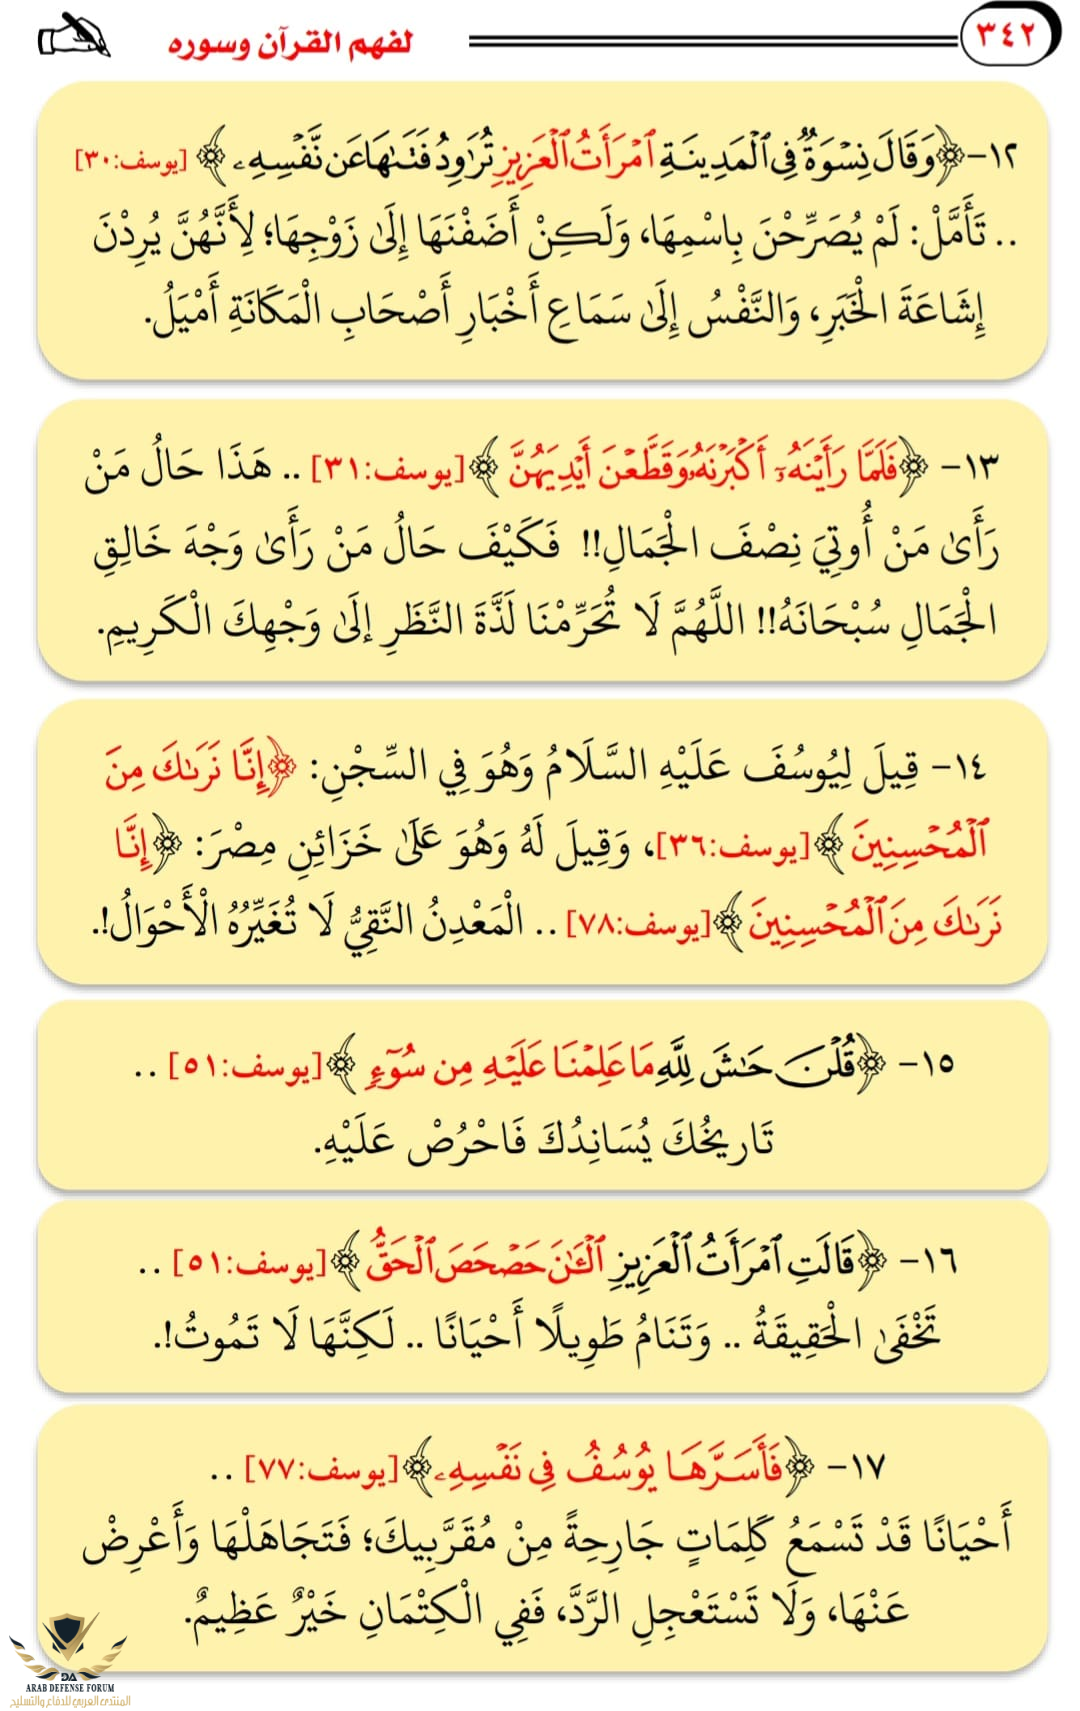 ٣٤٢
لفهم القرآن وسوره
١٢- ﴿وَقَالَ نِسْوَةٌ فِي ٱلْمَدِينَةِ ٱمْرَأَتُ ٱلْعَزِيزِ تُرَاوِدُ فَتَىٰهَا عَن نَّفْسِهِۦ﴾ [يوسف:٣٠]
.. تَأَمَّلْ: لَمْ يُصَرِّحْنَ بِاسْمِهَا، وَلَكِنْ أَضَفْنَهَا إِلَىٰ زَوْجِهَا؛ لِأَنَّهُنَّ يُرِدْنَ
إِشَاعَةَ الْخَبَرِ، وَالنَّفْسُ إِلَىٰ سَمَاعِ أَخْبَارِ أَصْحَابِ الْمَكَانَةِ أَمْيَلُ.
١٣- ﴿فَلَمَّا رَأَيْنَهُۥٓ أَكْبَرْنَهُۥ وَقَطَّعْنَ أَيْدِيَهُنَّ﴾ [يوسف:٣١] .. هَذَا حَالُ مَنْ
رَأَىٰ مَنْ أُوتِيَ نِصْفَ الْجَمَالِ!! فَكَيْفَ حَالُ مَنْ رَأَىٰ وَجْهَ خَالِقِ
الْجَمَالِ سُبْحَانَهُ!! اللَّهُمَّ لَا تُحَرِّمْنَا لَذَّةَ النَّظَرِ إِلَىٰ وَجْهِكَ الْكَرِيمِ.
١٤- قِيلَ لِيُوسُفَ عَلَيْهِ السَّلَامُ وَهُوَ فِي السِّجْنِ: ﴿إِنَّا نَرَىٰكَ مِنَ
ٱلْمُحْسِنِينَ﴾ [يوسف:٣٦]، وَقِيلَ لَهُ وَهُوَ عَلَىٰ خَزَائِنِ مِصْرَ: ﴿إِنَّا
نَرَىٰكَ مِنَ ٱلْمُحْسِنِينَ﴾ [يوسف:٧٨] .. الْمَعْدِنُ النَّقِيُّ لَا تُغَيِّرُهُ الْأَحْوَالُ!.
١٥- ﴿قُلْنَ حَـٰشَ لِلَّهِ مَا عَلِمْنَا عَلَيْهِ مِن سُوٓءٍ﴾ [يوسف:٥١] ..
تَارِيخُكَ يُسَانِدُكَ فَاحْرُصْ عَلَيْهِ.
١٦- ﴿قَالَتِ ٱمْرَأَتُ ٱلْعَزِيزِ ٱلْـَٰٔنَ حَصْحَصَ ٱلْحَقُّ﴾ [يوسف:٥١] ..
تَخْفَىٰ الْحَقِيقَةُ .. وَتَنَامُ طَوِيلًا أَحْيَانًا .. لَكِنَّهَا لَا تَمُوتُ!.
١٧- ﴿فَأَسَرَّهَا يُوسُفُ فِي نَفْسِهِۦ﴾ [يوسف:٧٧] ..
أَحْيَانًا قَدْ تَسْمَعُ كَلِمَاتٍ جَارِحِةً مِنْ مُقَرَّبِيكَ؛ فَتَجَاهَلْهَا وَأَعْرِضْ
عَنْهَا، وَلَا تَسْتَعْجِلِ الرَّدَّ، فَفِي الْكِتْمَانِ خَيْرٌ عَظِيمٌ.
DA
ARAB DEFENSE FORUM
المنتدى العربي للدفاع والتسليح